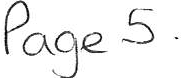 Page 5.